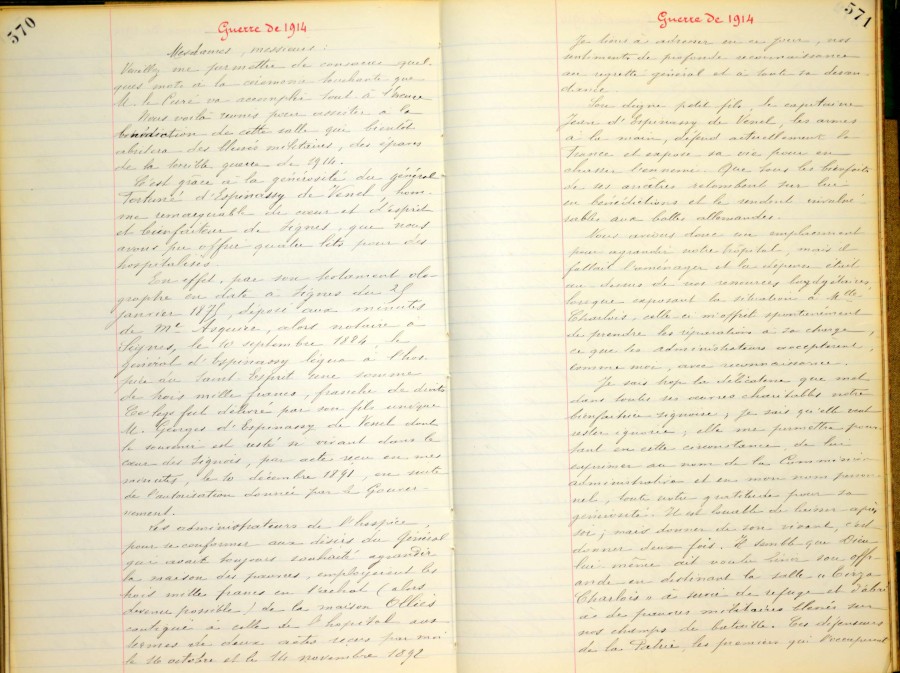 570
Guerre de 1914
Mesdames, messieurs :
Veuillez me permettre de consacrer quel-
ques mots à la cérémonie touchante que
M. le Curé va accomplir tout à l'heure
Nous voilà réunis pour assister à la
bénédiction de cette salle que bientôt
abritera des blessés militaires, des épaves
de la terrible guerre de 1914.
C'est grâce à la générosité du général
Fortuné d'Espinassy de Venel, hom-
me remarquable de cœur et d'esprit
et bienfaiteur de Signes, que nous
avons pu offrir quatre lits pour des
hospitalisés
En effet, par son testament olo-
graphe en date à Signes du 25
janvier 1875, déposé aux minutes
de Me Asquier, alors notaire à
Signes, le 10 septembre 1884, le
général d'Espinassy légua à l'hos
pice du Saint Esprit une somme
de trois mille francs, franche de droits
Ce legs fut délivré par son fils unique
M. Georges d'Espinassy de Venel dont
le souvenir est resté si vivant dans le
cœur des Signois, par acte reçu en mes
minutes, le 10 décembre 1891, en suite
de l'autorisation donnée par le Gouver-
nement.
Les administrateurs de l'hospice,
pour se conformer aux désirs du Général
qui avait toujours souhaité agrandir
la maison des pauvres, employèrent les
trois mille francs en l'achat (alors
devenu possible) de la maison Ollies
contiguë à celle de l'hôpital aux
termes de deux actes reçus par moi
le 16 octobre et le 14 novembre 1892
571
Guerre de 1914
Je tiens à adresser en ce jour, nos
sentiments de profonde reconnaissance
au regretté général et à toute sa descen-
dance.
Son digne petit fils, le capitaine
d'Espinassy de Venel, les armes
à la main, défend actuellement la
France et expose sa vie pour en
chasser l'ennemi. Que tous les bienfaits
de ses ancêtres retombent sur lui
en bénédictions et le rendent invulné-
rable aux balles allemandes.
Nous avions donc un emplacement
pour agrandir notre hôpital, mais il
fallait l'aménager et la dépense était
au dessus de nos ressources budgétaires,
lorsque exposant la situation à Mlle
Charlois, celle-ci m'offrit spontanément
de prendre les réparations à sa charge,
ce que les administrateurs acceptèrent,
comme moi, avec reconnaissance.
Je sais trop la délicatesse que met
dans toutes ses œuvres charitables notre
bienfaitrice signoise ; je sais qu'elle veut
rester ignorée ; elle me permettra pour-
tant en cette circonstance de lui
exprimer au nom de la Commission
administrative et en mon nom person-
nel, toute notre gratitude pour sa
générosité. Il est louable de laisser après
soi, mais donner de son vivant, c'est
donner deux fois. Il semble que Dieu
lui même ait voulu bénir son offr-
ande en destinant la salle "
Charlois" à servir de refuge et d'abri
à de pauvres militaires blessés sur
nos champs de bataille. Ces défenseurs
de la Patrie, les premiers qui l'occuperont